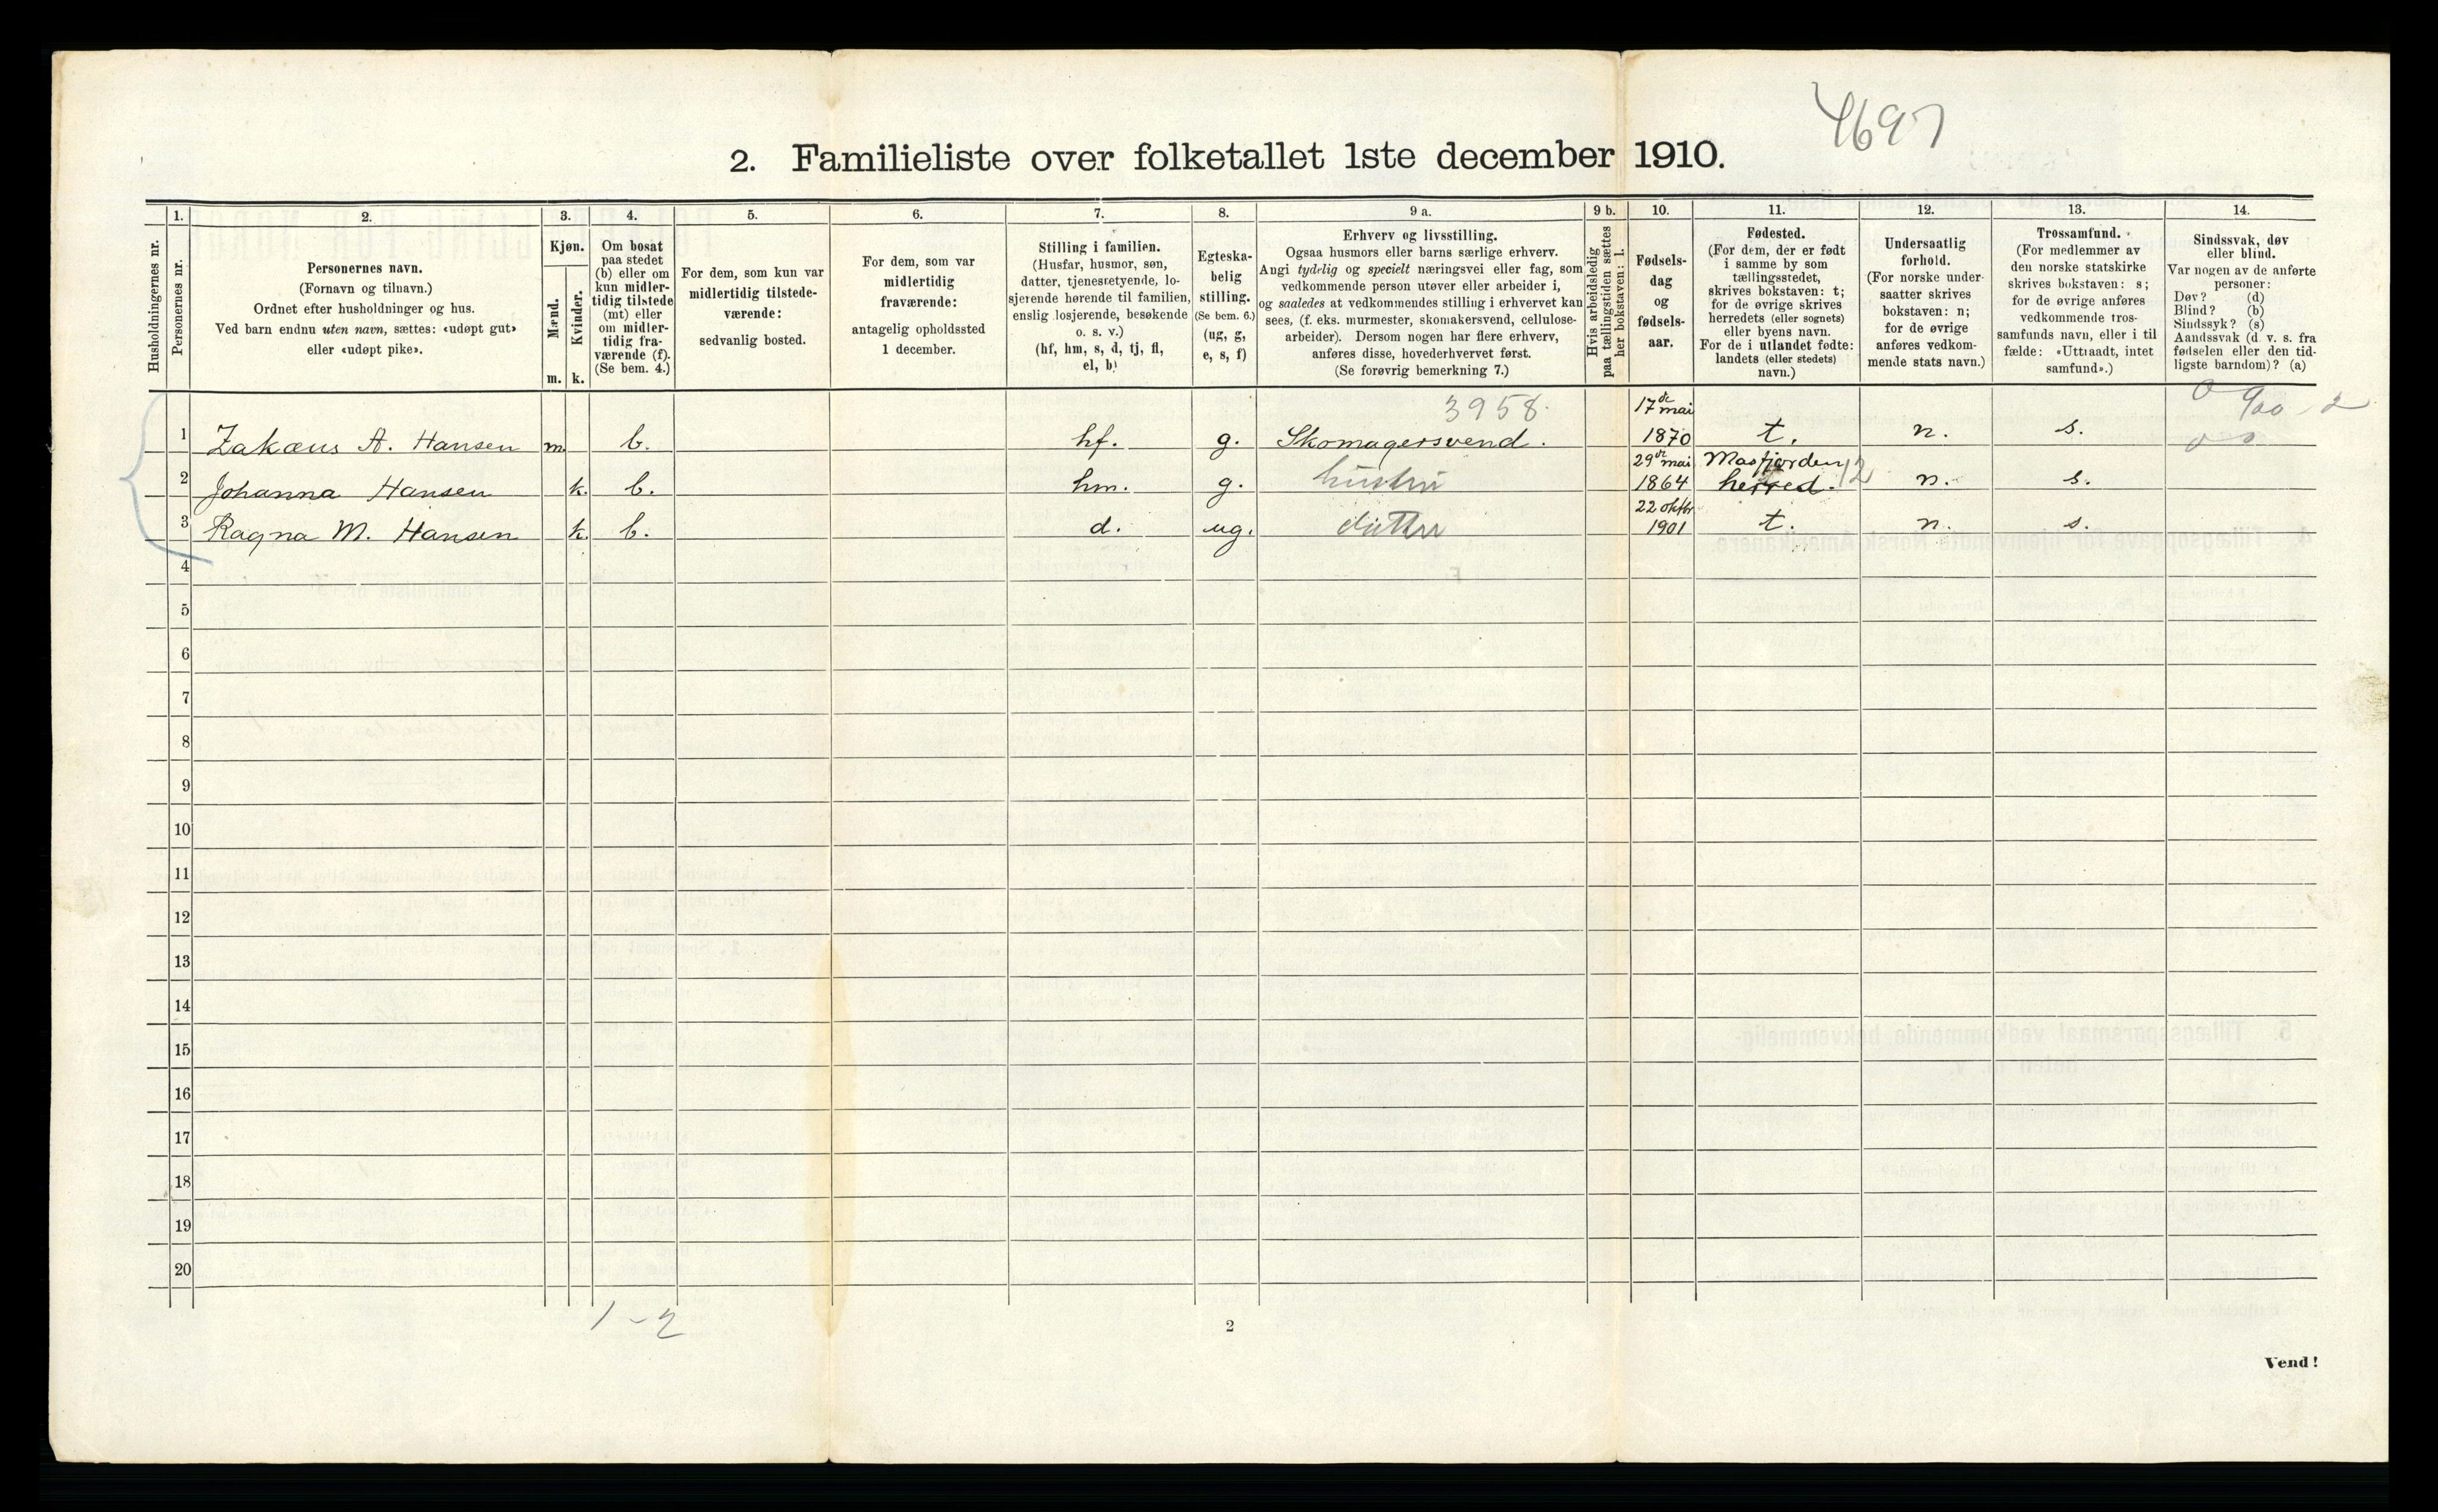 4697
2. Familieliste over folketallet 1ste december 1910.
Husholdningernes nr.
1.
Personernes nr.
2.
Personernes navn.
(Fornavn og tilnavn.)
Ordnet efter husholdninger og hus.
Ved barn endnu uten navn, sættes: «udøpt gut»
eller «udøpt pike».
3.
Kjøn.
Mænd.
m.
Kvinder.
k.
4.
Om bosat
paa stedet
(b) eller om
kun midler-
tidig tilstede
(mt) eller
om midler-
tidig fra-
værende (f).
(Se bem. 4.)
5.
For dem, som kun var
midlertidig tilstede-
værende:
sedvanlig bosted.
6.
For dem, som var
midlertidig
fraværende:
antagelig opholdssted
1 december.
7.
Stilling i familien.
(Husfar, husmor, søn,
datter, tjenestetyende, lo-
sjerende hørende til familien,
enslig losjerende, besøkende
o. s. v.)
(hf, hm, s, d, tj, fl,
el, b)
8.
Egteska-
belig
stilling.
(Se bem. 6.)
(ug, g,
e, s, f)
9 a.
Erhverv og livsstilling.
Ogsaa husmors eller barns særlige erhverv.
Angi tydelig og specielt næringsvei eller fag, som
vedkommende person utøver eller arbeider i,
og saaledes at vedkommendes stilling i erhvervet kan
sees, (f. eks. murmester, skomakersvend, cellulose-
arbeider). Dersom nogen har flere erhverv,
anføres disse, hovederhvervet først.
(Se forøvrig bemerkning 7.)
9 b.
Hvis arbeidsledig
paa tællingstiden sættes
her bokstaven: l.
10.
Fødsels-
dag
og
fødsels-
aar.
11.
Fødested.
(For dem, der er født
i samme by som
tællingsstedet,
skrives bokstaven: t;
for de øvrige skrives
herredets (eller sognets)
eller byens navn.
For de i utlandet fødte:
landets (eller stedets)
navn.)
12.
Undersaatlig
forhold.
(For norske under-
saatter skrives
bokstaven: n;
for de øvrige
anføres vedkom-
mende stats navn.)
13.
Trossamfund.
(For medlemmer av
den norske statskirke
skrives bokstaven: s;
for de øvrige anføres
vedkommende tros-
samfunds navn, eller i til-
fælde: «Uttraadt, intet
samfund».)
14.
Sindssvak, døv
eller blind.
Var nogen av de anførte
personer:
Døv? (d)
Blind? (b)
Sindssyk? (s)
Aandssvak (d. v. s. fra
fødselen eller den tid-
ligste barndom)? (a)
3958. 17de mai
1 Zakæus A. Hansen m. b. hf. g. Skomagersvend. 1870 t. n. s.
29de mai Masfjorden
2 Johanna Hansen k. b. hm. g. hustru 1864 herred. 12 n. s.
22 oktbr
3 Ragna M. Hansen k. b. d. ug. datter 1901 t. n. s.
4
5
6
7
8
9
10
11
12
13
14
15
16
17
18
19
20
1-2
2
Vend!